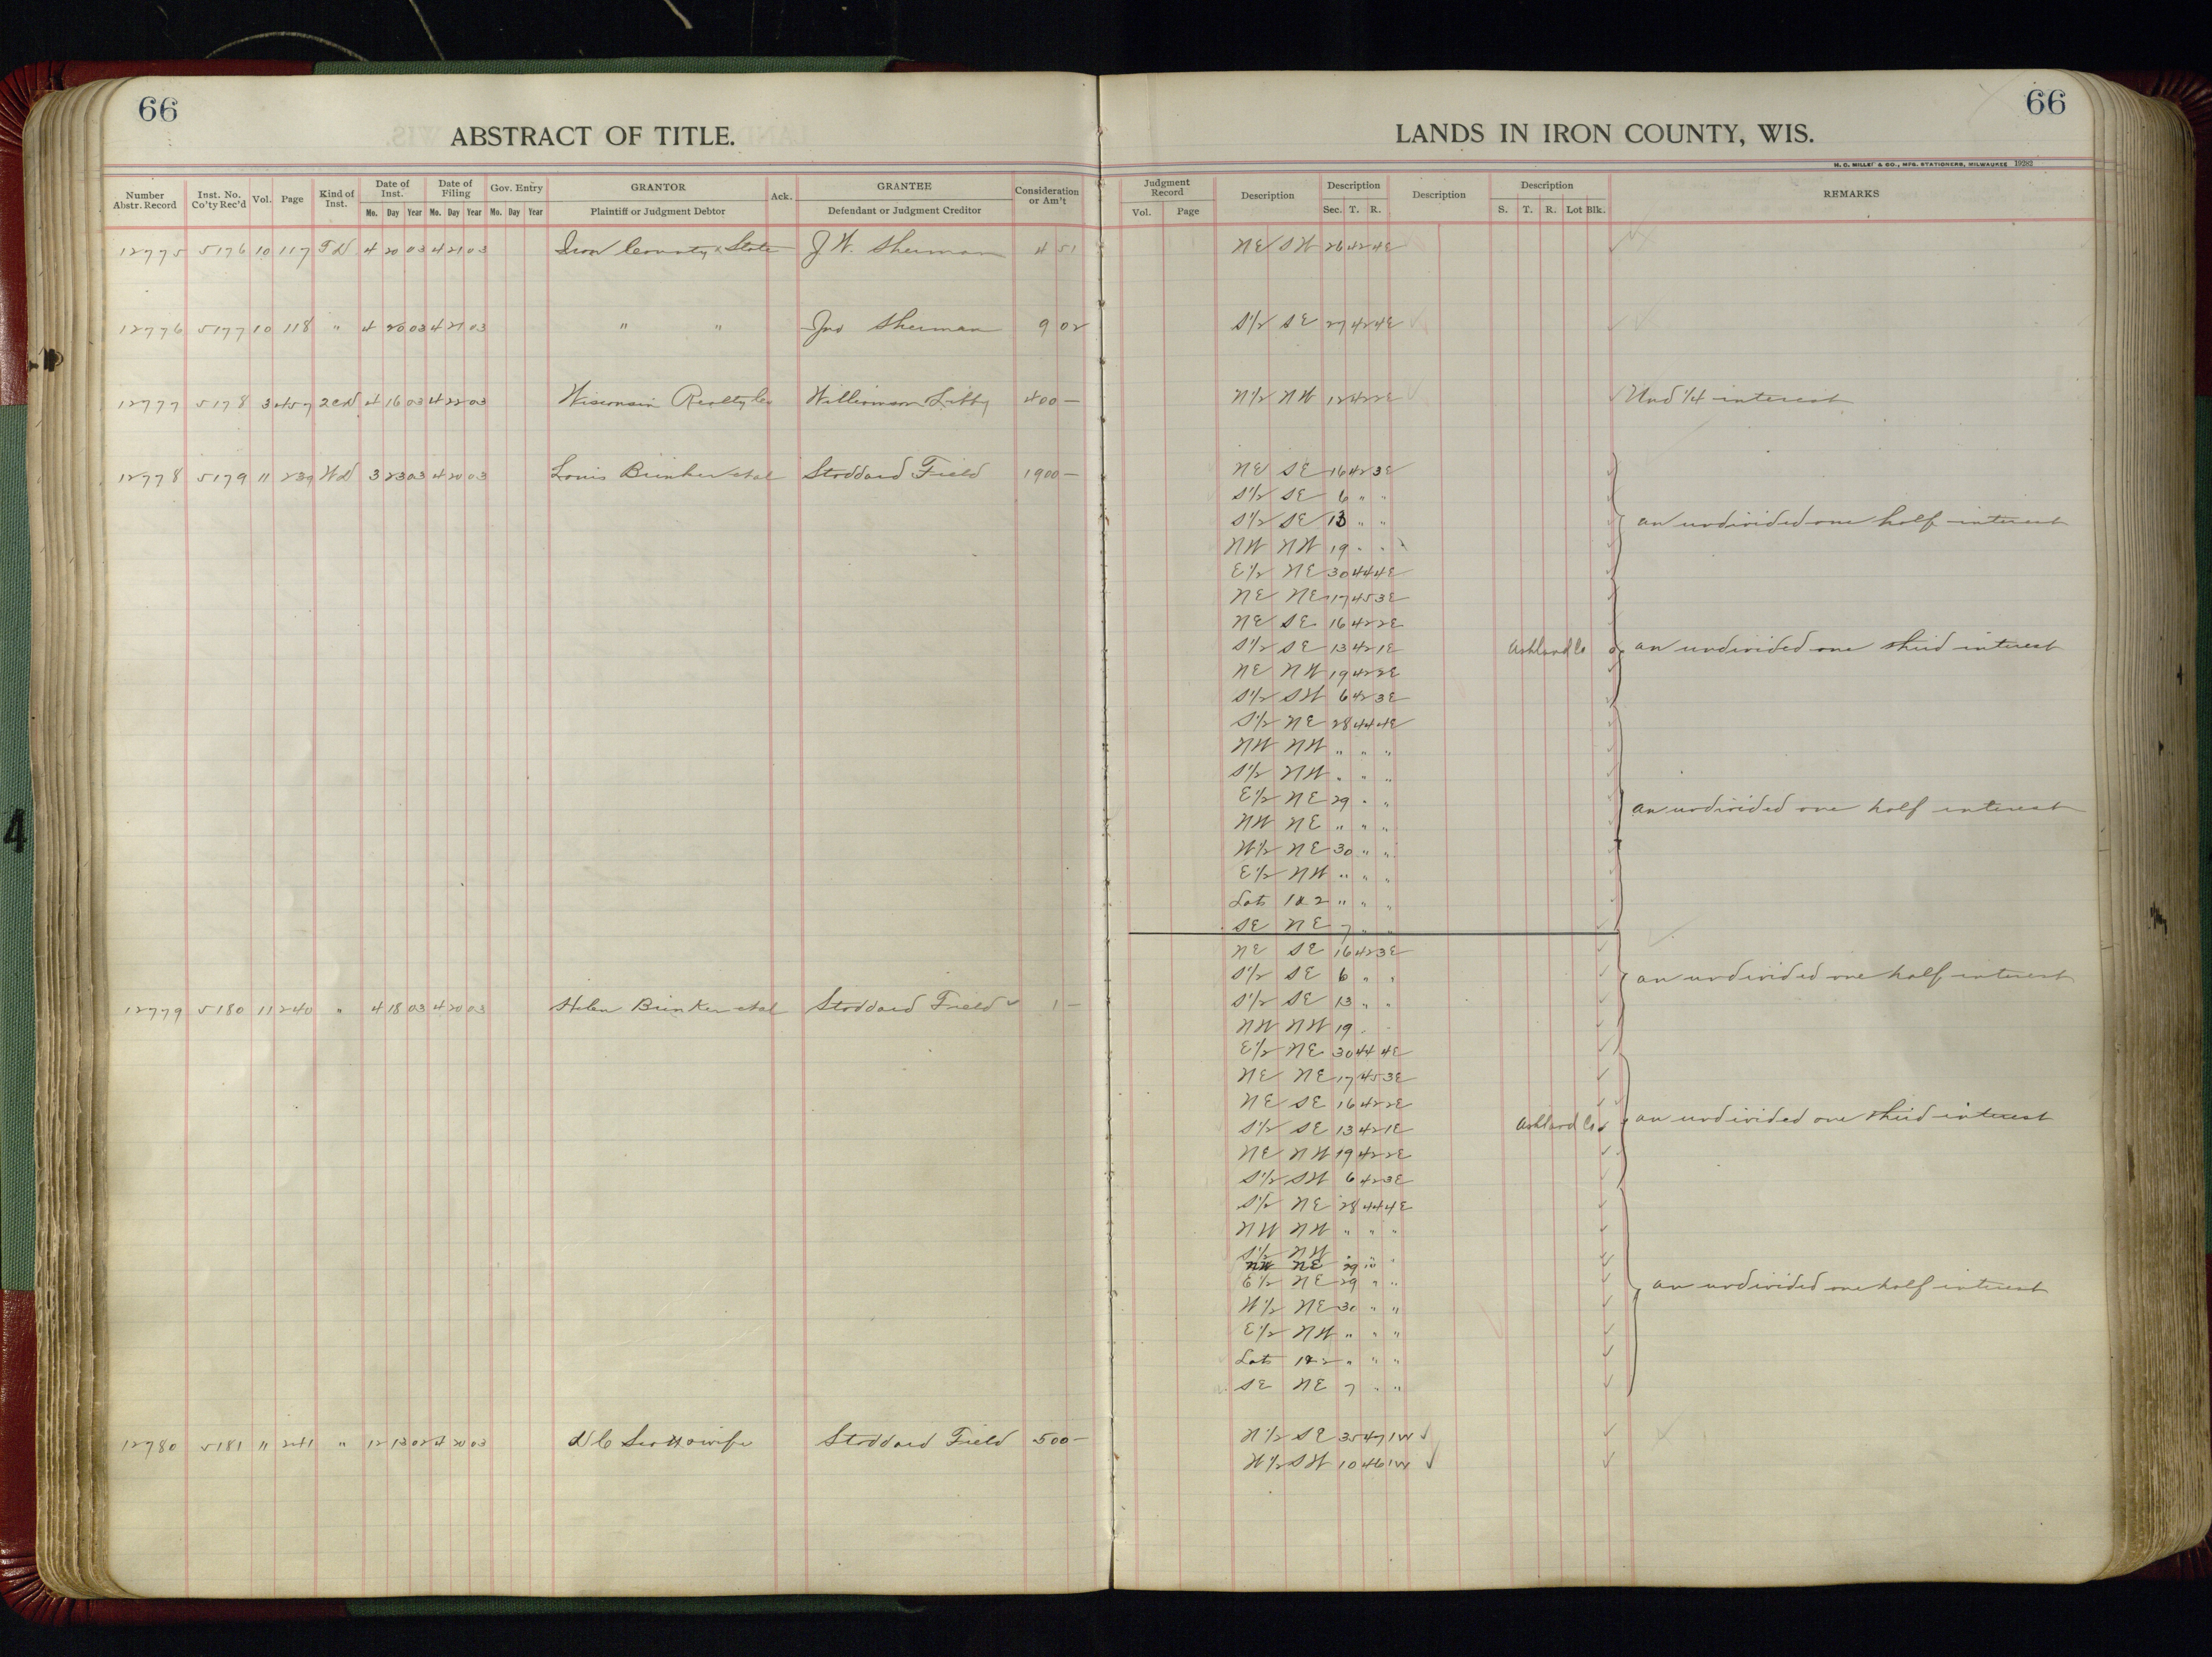 66
66
ABSTRACT OF TITLE.
LANDS IN IRON COUNTY, WIS.
H. C. MILLER & CO., MFG. STATIONERS, MILWAUKEE 19282
Number Abstr. Record Inst. No. Co'ty Rec'd Vol. Page Kind of Inst. Date of Inst. Date of Filing Gov. Entry GRANTOR Ack. GRANTEE Consideration or Am't Judgment Record Description Description Description Description REMARKS
Mo. Day Year Mo. Day Year Mo. Day Year Plaintiff or Judgment Debtor Defendant or Judgment Creditor Vol. Page Sec. T. R. S. T. R. Lot Blk.
12775 5176 10 117 TD 4 20 03 4 21 03 Iron County & State J W. Sherman 4 51 NE SW 26 42 4E
12776 5177 10 118 " 4 20 03 4 21 03 " " Jno Sherman 9 02 S1/2 SE 27 42 4E
12777 5178 3 457 2CD 4 16 03 4 22 03 Wisconsin Realty Co Williamson & Libby 400 — N1/2 NW 12 42 2E Und 1/4 interest
12778 5179 11 239 WD 3 23 03 4 20 03 Louis Brinker etal Stoddard Field 1900 — NE SE 16 42 3E
S1/2 SE 6 " "
S1/2 SE 13 " " an undivided one half interest
NW NW 19 " "
E1/2 NE 30 44 4E
NE NE 17 45 3E
NE SE 16 42 2E
S1/2 SE 13 42 1E Ashland Co an undivided one third interest
NE NW 19 42 2E
S1/2 SW 6 42 3E
S1/2 NE 28 44 4E
NW NW " " "
S1/2 NW " " "
E1/2 NE 29 " " an undivided one half interest
NW NE " " "
W1/2 NE 30 " "
E1/2 NW " " "
Lots 1&2 " " "
SE NE 7 " "
NE SE 16 42 3E
S1/2 SE 6 " " an undivided one half interest
12779 5180 11 240 " 4 18 03 4 20 03 Helen Brinker etal Stoddard Field 1 — S1/2 SE 13 " "
NW NW 19 " "
E1/2 NE 30 44 4E
NE NE 17 45 3E
NE SE 16 42 2E
S1/2 SE 13 42 1E Ashland Co an undivided one third interest
NE NW 19 42 2E
S1/2 SW 6 42 3E
S1/2 NE 28 44 4E
NW NW " " "
S1/2 NW " " "
NW NE 29 " "
E1/2 NE 29 " " an undivided one half interest
W1/2 NE 30 " "
E1/2 NW " " "
Lots 1&2 " " "
SE NE 7 " "
12780 5181 11 241 " 12 13 02 4 20 03 D C Scott & wife Stoddard Field 500 — N1/2 SE 35 47 1W
W1/2 SW 10 46 1W
4